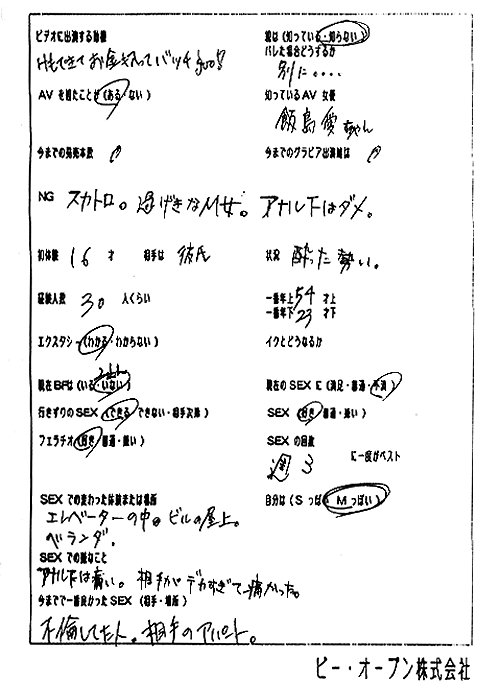 ビデオに出演する動機
親は (知っている・知らない)
バレた場合どうするか
別に・・・・
AV を観たことが (ある・ない)
知っているAV 女優
飯島愛ちゃん
今までの発売本数 0
今までのグラビア出演雑誌は 0
NG スカトロ。過げきなM女。アナルFはダメ。
初体験 16 才 相手は 彼氏
状況 酔った勢い。
経験人数 30 人くらい
一番年上 54 才上
一番年下 23 才下
エクスタシー (わかる・わからない)
イクとどうなるか
現在BFは (いる・いない)
現在の SEX に (満足・普通・不満)
行きずりのSEX (できる・できない・相手次第)
SEX (好き・普通・嫌い)
フェラチオ (好き・普通・嫌い)
SEX の回数
週 3 に一度がベスト
SEX での変わった体験または場所
自分は (S っぽい・M っぽい)
エレベーターの中。ビルの屋上。
ベランダ。
SEX での嫌なこと
アナルFは痛い。相手がデカすぎて痛かった。
今までで一番良かったSEX (相手・場所)
不倫してた人。相手のアパート。
ビー・オープン株式会社